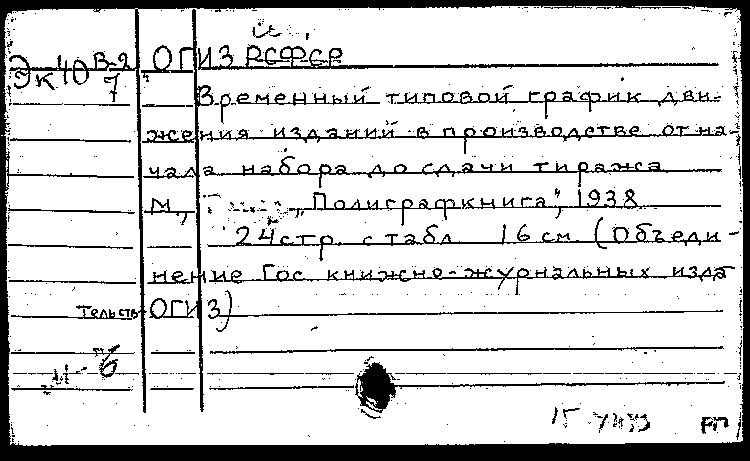 Эк 40 В-2 ОГИЗ РСФСР
7
Временный типовой график дви-
жения изданий в производстве от на-
чала набора до сдачи тиража
М., "Полиграфкнига", 1938
24 стр. с табл. 16 см. (Объеди-
нение Гос. книжно-журнальных изда
тельств ОГИЗ)
РП